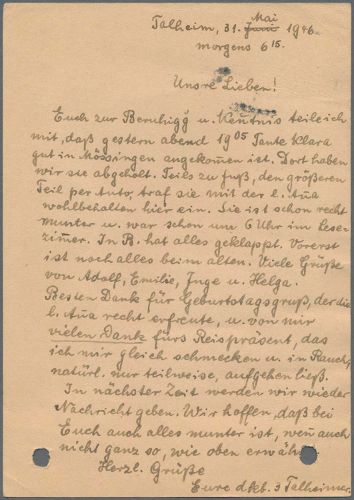 Talheim, 31. Juni Mai 1946.
morgens 6 15.
Unsre Lieben!
Euch zur Beruhigg u. Kenntnis teile ich
mit, daß gestern abend 19 05 Tante Klara
gut in Mössingen angekommen ist. Dort haben
wir sie abgeholt. Teils zu fuß, den größeren
Teil per Auto, traf sie mit der l. Aña
wohlbehalten hier ein. Sie ist schon recht
munter u. war schon um 6 Uhr im Lese-
zimmer. In R. hat alles geklappt. Vorerst
ist noch alles beim alten. Viele Grüße
von Adolf, Emilie, Inge u. Helga.
Besten Dank für Geburtstagsgruß, der die
l. Aña recht erfreute, u. von mir
vielen Dank fürs Reispräsent, das
ich mir gleich schmecken u. in Rauch,
natürl. nur teilweise, aufgehen ließ.
In nächster Zeit werden wir wieder
Nachricht geben. Wir hoffen, daß bei
Euch auch alles munter ist, weñ auch
nicht ganz so, wie oben erwähnt
Herzl. Grüße
Eure dkb. 3 Talheimer